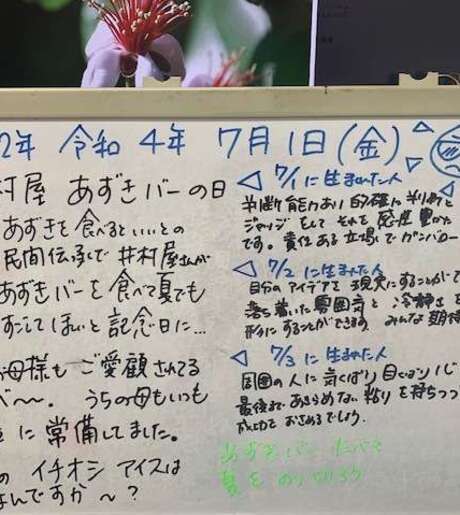 2年 令和 4年 7月1日(金)
村屋 あずきバーの日
あずきを食べるといいとの
民間伝承で 井村屋さんが
あずきバーを食べて夏でも
すごしてほしいと記念日に…
母様も ご愛顧されてる
べ〜〜. うちの母もいつも
に 常備してました。
の イチオシ アイスは
なんですか 〜?
◁ 7/1 に生まれた人
判断能力あり 的確に判断と
ジャッジ そして それを 感度 豊かな
です。責任ある立場でガンバロー
◁ 7/2 に生まれた人
自分のアイデアを現実にすることがで
落ち着いた雰囲気と 冷静さを
形にすることができます. みんな期待
◁ 7/3 に生まれた人
周囲の人に気くばり 目くばり
最後まで あきらめない 粘りを持ちつつ
成功を おさめるでしょう.
あずきバー たべて
夏を のりきろう